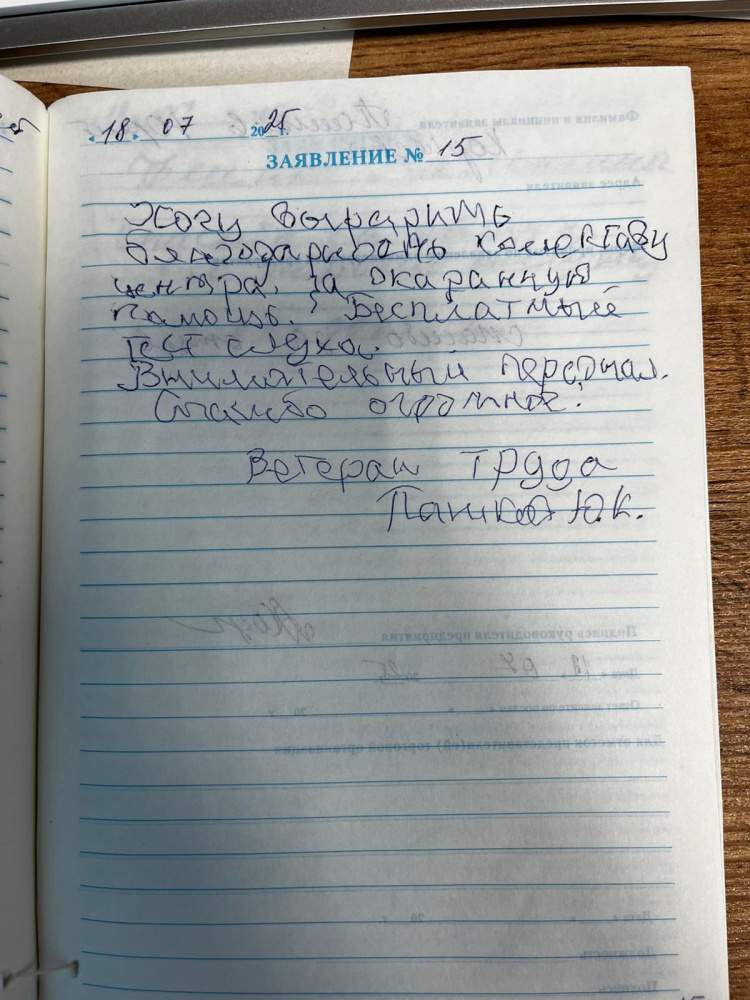 « 18 » 07 2025 г.
ЗАЯВЛЕНИЕ № 15
Хочу выразить
благодарность колективу
центра, за оказанную
помощь. Бесплатный
тест слуха.
Внимательный персонал.
Спасибо огромное!
Ветеран труда
Ю.К.